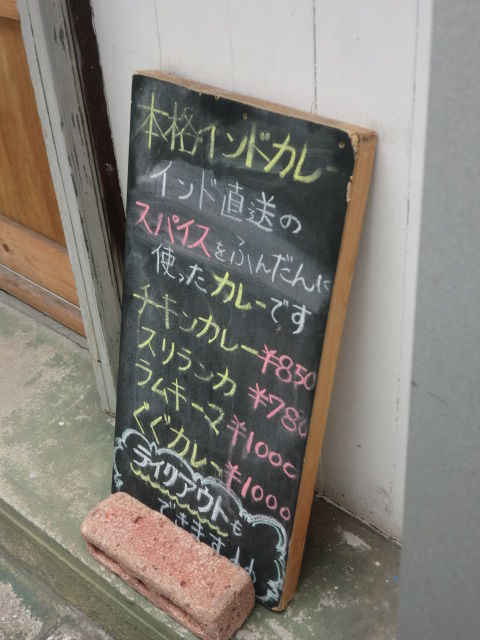 本格インドカレー
インド直送の
スパイスをふんだんに
使ったカレーです
チキンカレー ¥850
スリランカ ¥780
ラムキーマ ¥1000
ぐぐカレー ¥1000
テイクアウトも
できます!!